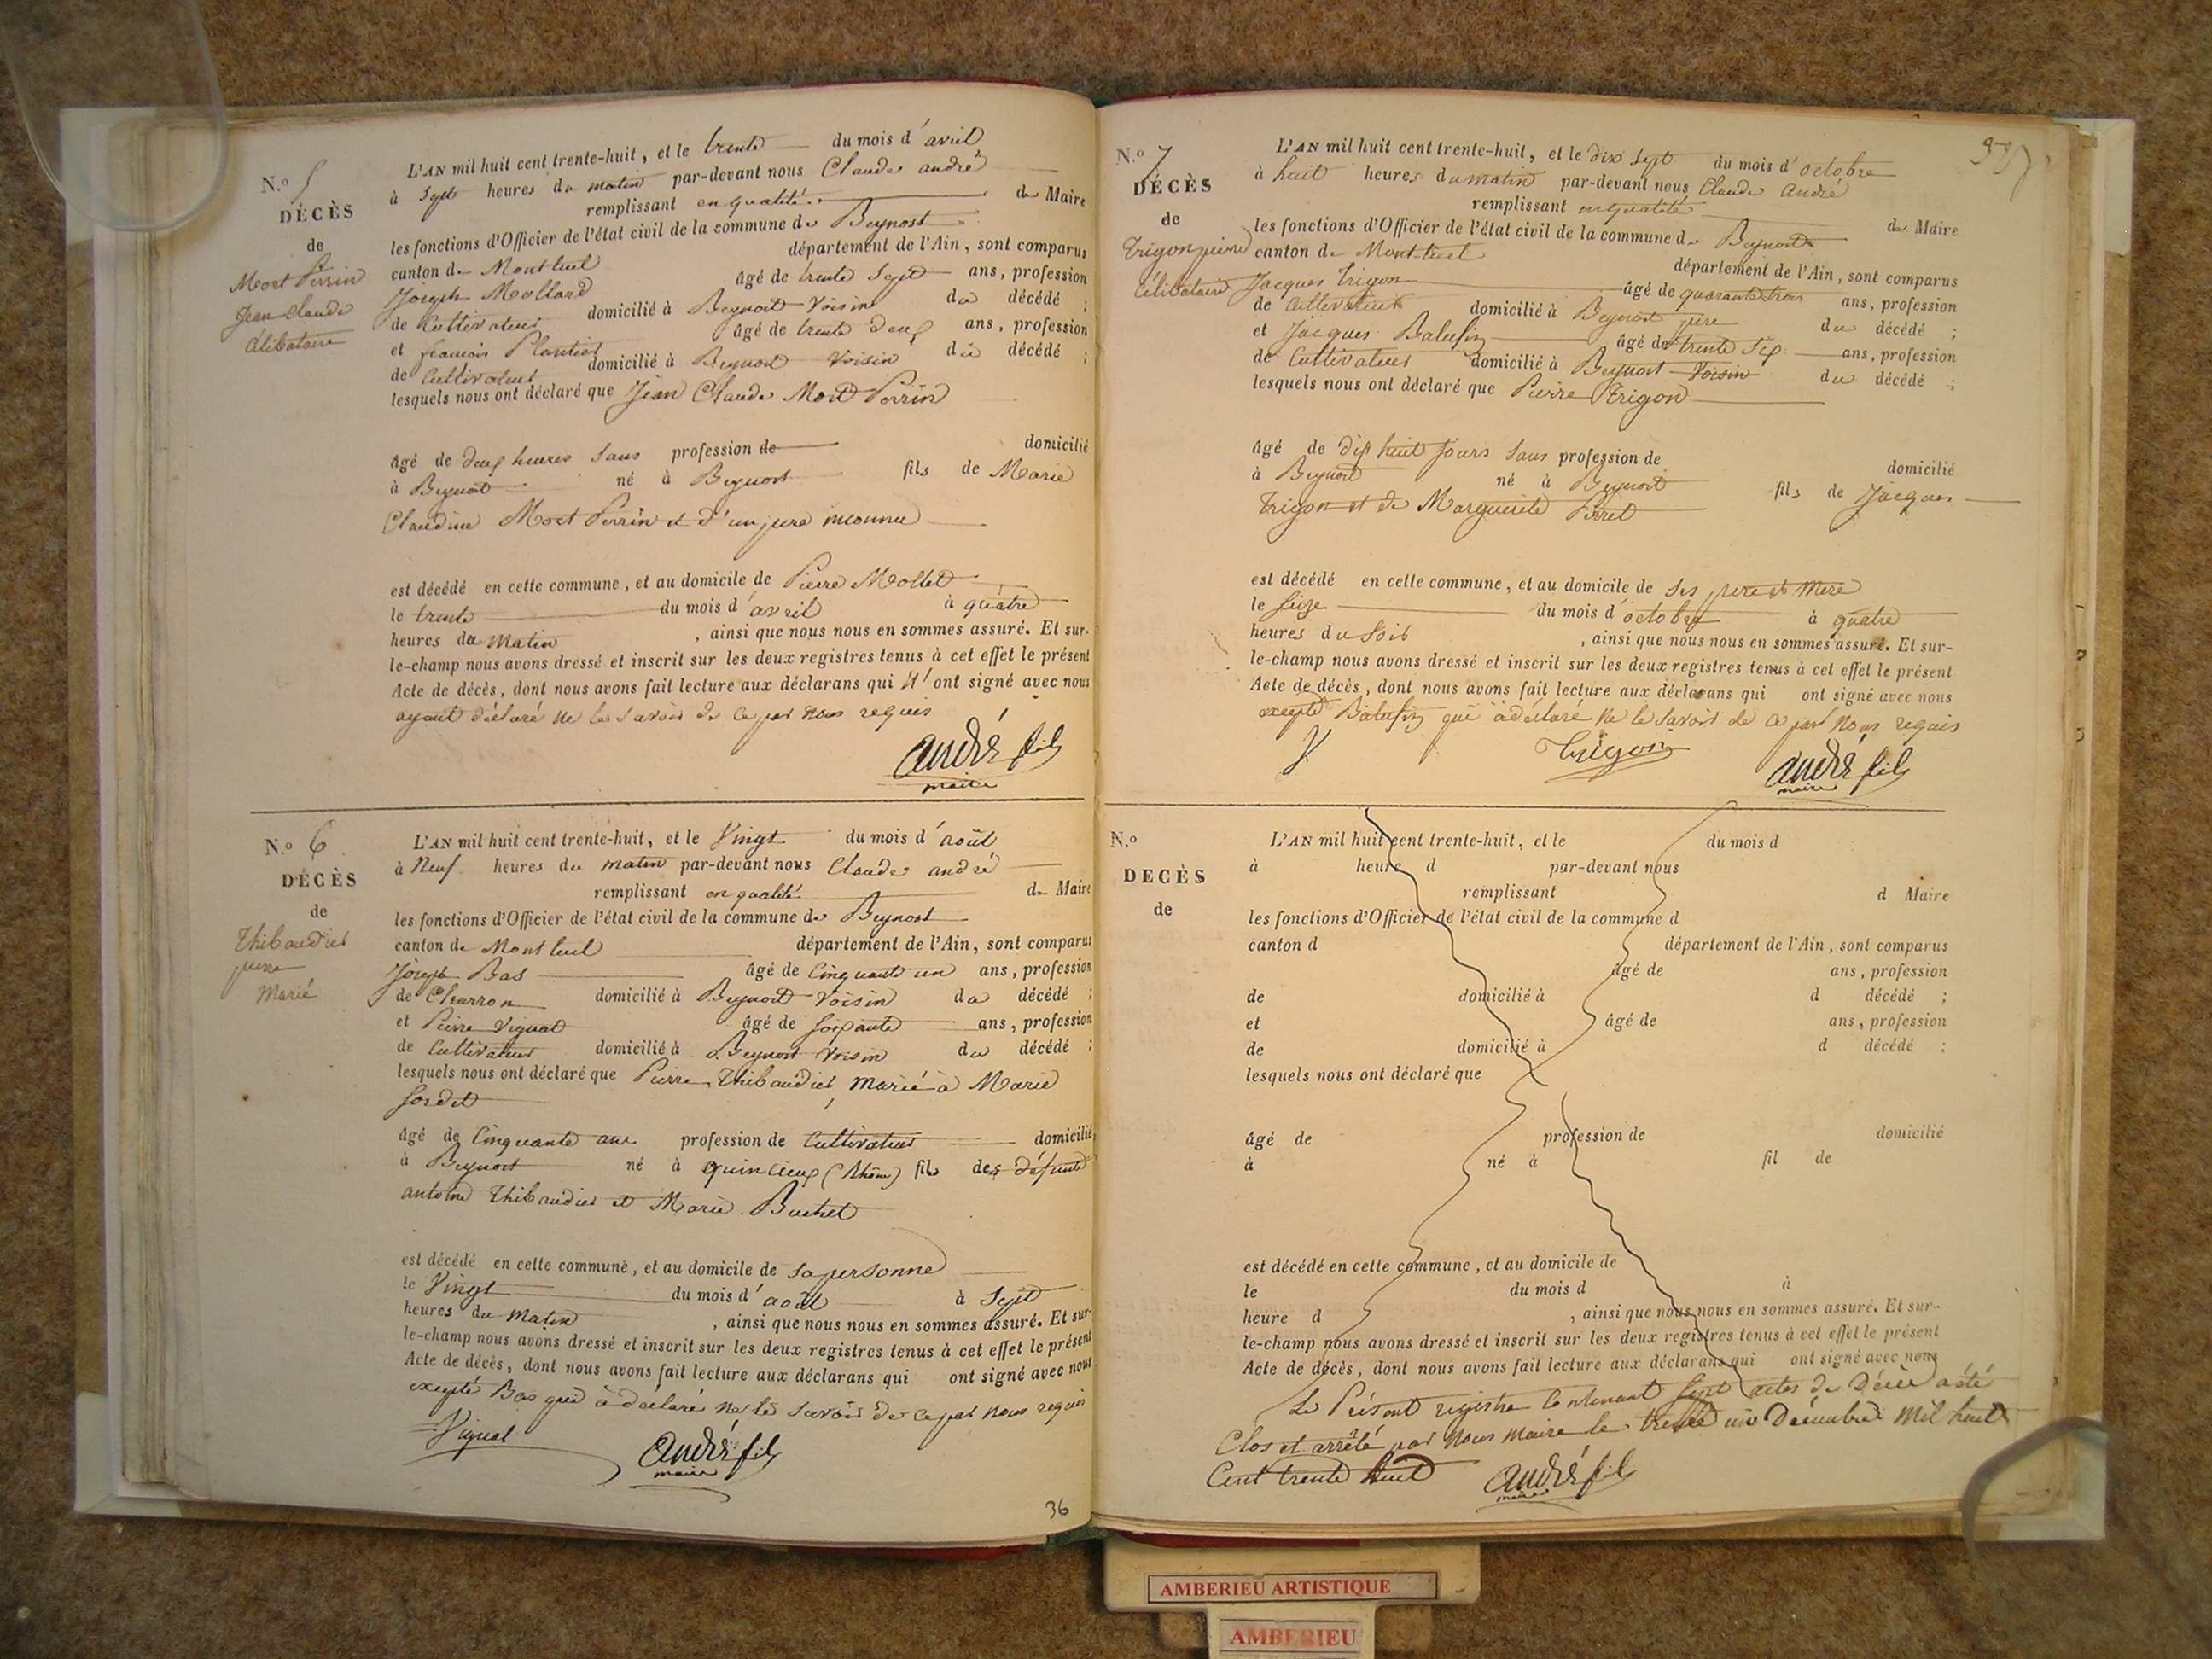 N.o 5
DÉCÈS
de
Mort Perrin
Jean Claude
célibataire
L'AN mil huit cent trente-huit, et le trente du mois d'avril
à sept heures du matin par-devant nous Claude andré
remplissant en qualité de Maire
les fonctions d'Officier de l'état civil de la commune de Beynost
canton de Montluel département de l'Ain, sont comparus
Joseph Mollard âgé de trente sept ans, profession
de Cultivateur domicilié à Beynost Voisin du décédé ;
et françois Plantier âgé de trente deux ans, profession
de Cultivateur domicilié à Beynost Voisin du décédé ;
lesquels nous ont déclaré que Jean Claude Mort Perrin
âgé de deux heures sans profession de domicilié
à Beynost né à Beynost fils de Marie
Claudine Mort Perrin et d'un père inconnu
est décédé en cette commune, et au domicile de Pierre Mollet
le trente du mois d'avril à quatre
heures du Matin, ainsi que nous nous en sommes assuré. Et sur-
le-champ nous avons dressé et inscrit sur les deux registres tenus à cet effet le présent
Acte de décès, dont nous avons fait lecture aux déclarans qui n'ont signé avec nous
ayant déclaré ne le savoir de ce par nous requis
andré fils
maire
N.o 6
DÉCÈS
de
Thibaudier
pierre
Marié
L'AN mil huit cent trente-huit, et le Vingt du mois d'août
à Neuf heures du matin par-devant nous Claude andré
remplissant en qualité de Maire
les fonctions d'Officier de l'état civil de la commune de Beynost
canton de Montluel département de l'Ain, sont comparus
Joseph Bas âgé de Cinquante un ans, profession
de Charron domicilié à Beynost Voisin du décédé ;
et Pierre Vignat âgé de soixante ans, profession
de Cultivateur domicilié à Beynost Voisin du décédé ;
lesquels nous ont déclaré que Pierre Thibaudier, marié à Marie
Sordet
âgé de Cinquante ans profession de Cultivateur domicilié
à Beynost né à quincieux (Rhône) fils des défunts
antoine Thibaudier et Marie Buchet
est décédé en cette commune, et au domicile de sa personne
le Vingt du mois d'août à Sept
heures du Matin, ainsi que nous nous en sommes assuré. Et sur-
le-champ nous avons dressé et inscrit sur les deux registres tenus à cet effet le présent
Acte de décès, dont nous avons fait lecture aux déclarans qui ont signé avec nous
excepté Bas qui à déclaré ne le savoir de ce par nous requis
Vignat andré fils
maire
36
N.o 7
DÉCÈS
de
Trigon pierre
Célibataire
L'AN mil huit cent trente-huit, et le dix sept du mois d'octobre
à huit heures du matin par-devant nous Claude André
remplissant en qualité de Maire
les fonctions d'Officier de l'état civil de la commune de Beynost
canton de Mont-luel département de l'Ain, sont comparus
Jacques Trigon âgé de quarante trois ans, profession
de Cultivateur domicilié à Beynost père du décédé ;
et Jacques Balufin âgé de trente six ans, profession
de Cultivateur domicilié à Beynost Voisin du décédé ;
lesquels nous ont déclaré que Pierre Trigon
âgé de dix huit jours sans profession de domicilié
à Beynost né à Beynost fils de Jacques
Trigon et de Marguerite Perret
est décédé en cette commune, et au domicile de ses père et Mère
le seize du mois d'octobre à quatre
heures du Soir, ainsi que nous nous en sommes assuré. Et sur-
le-champ nous avons dressé et inscrit sur les deux registres tenus à cet effet le présent
Acte de décès, dont nous avons fait lecture aux déclarans qui ont signé avec nous
excepté Balufin qui à déclaré ne le savoir de ce par nous requis
Trigon andré fils
maire
N.o
DÉCÈS
de
L'AN mil huit cent trente-huit, et le du mois d
à heure d par-devant nous
remplissant d Maire
les fonctions d'Officier de l'état civil de la commune d
canton d département de l'Ain, sont comparus
âgé de ans, profession
de domicilié à d décédé ;
et âgé de ans, profession
de domicilié à d décédé ;
lesquels nous ont déclaré que
âgé de profession de domicilié
à né à fil de
est décédé en cette commune, et au domicile de
le du mois d à
heure d , ainsi que nous nous en sommes assuré. Et sur-
le-champ nous avons dressé et inscrit sur les deux registres tenus à cet effet le présent
Acte de décès, dont nous avons fait lecture aux déclarans qui ont signé avec nous
Le Présent registre contenant Sept actes de Décès a été
Clos et arrêté par nous maire le trente un Décembre Mil huit
Cent trente huit andré fils
maire
AMBERIEU ARTISTIQUE
AMBERIEU